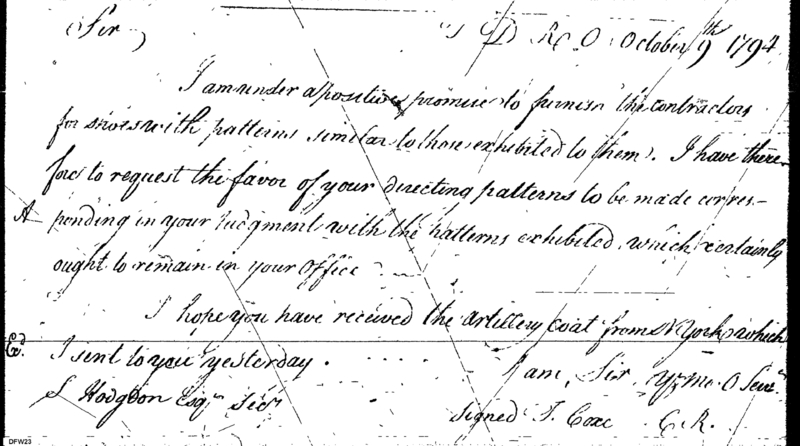 Sir T D R O October 9th 1794
I am under a positive promise to furnish the contractors
for shoes with patterns similar to those exhibited to them. I have there
fore to request the favor of your directing patterns to be made corres-
A ponding in your Judgment with the patterns exhibited, which certainly
ought to remain in your Office
I hope you have received the Artillery Coat from N York which
I sent to you yesterday.
I am, Sir, yr mo O Servt
S Hodgdon Esqr
Signed T. Coxe C. R.
DFW23